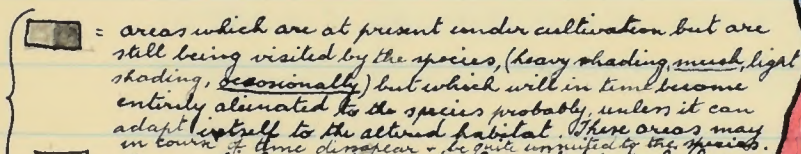 = areas which are at present under cultivation but are
still being visited by the species, (heavy shading, much, light
shading, occasionally) but which will in time become
entirely alienated to the species probably, unless it can
adapt itself to the altered habitat. These areas may
in course of time disappear & be quite unsuited to the species.